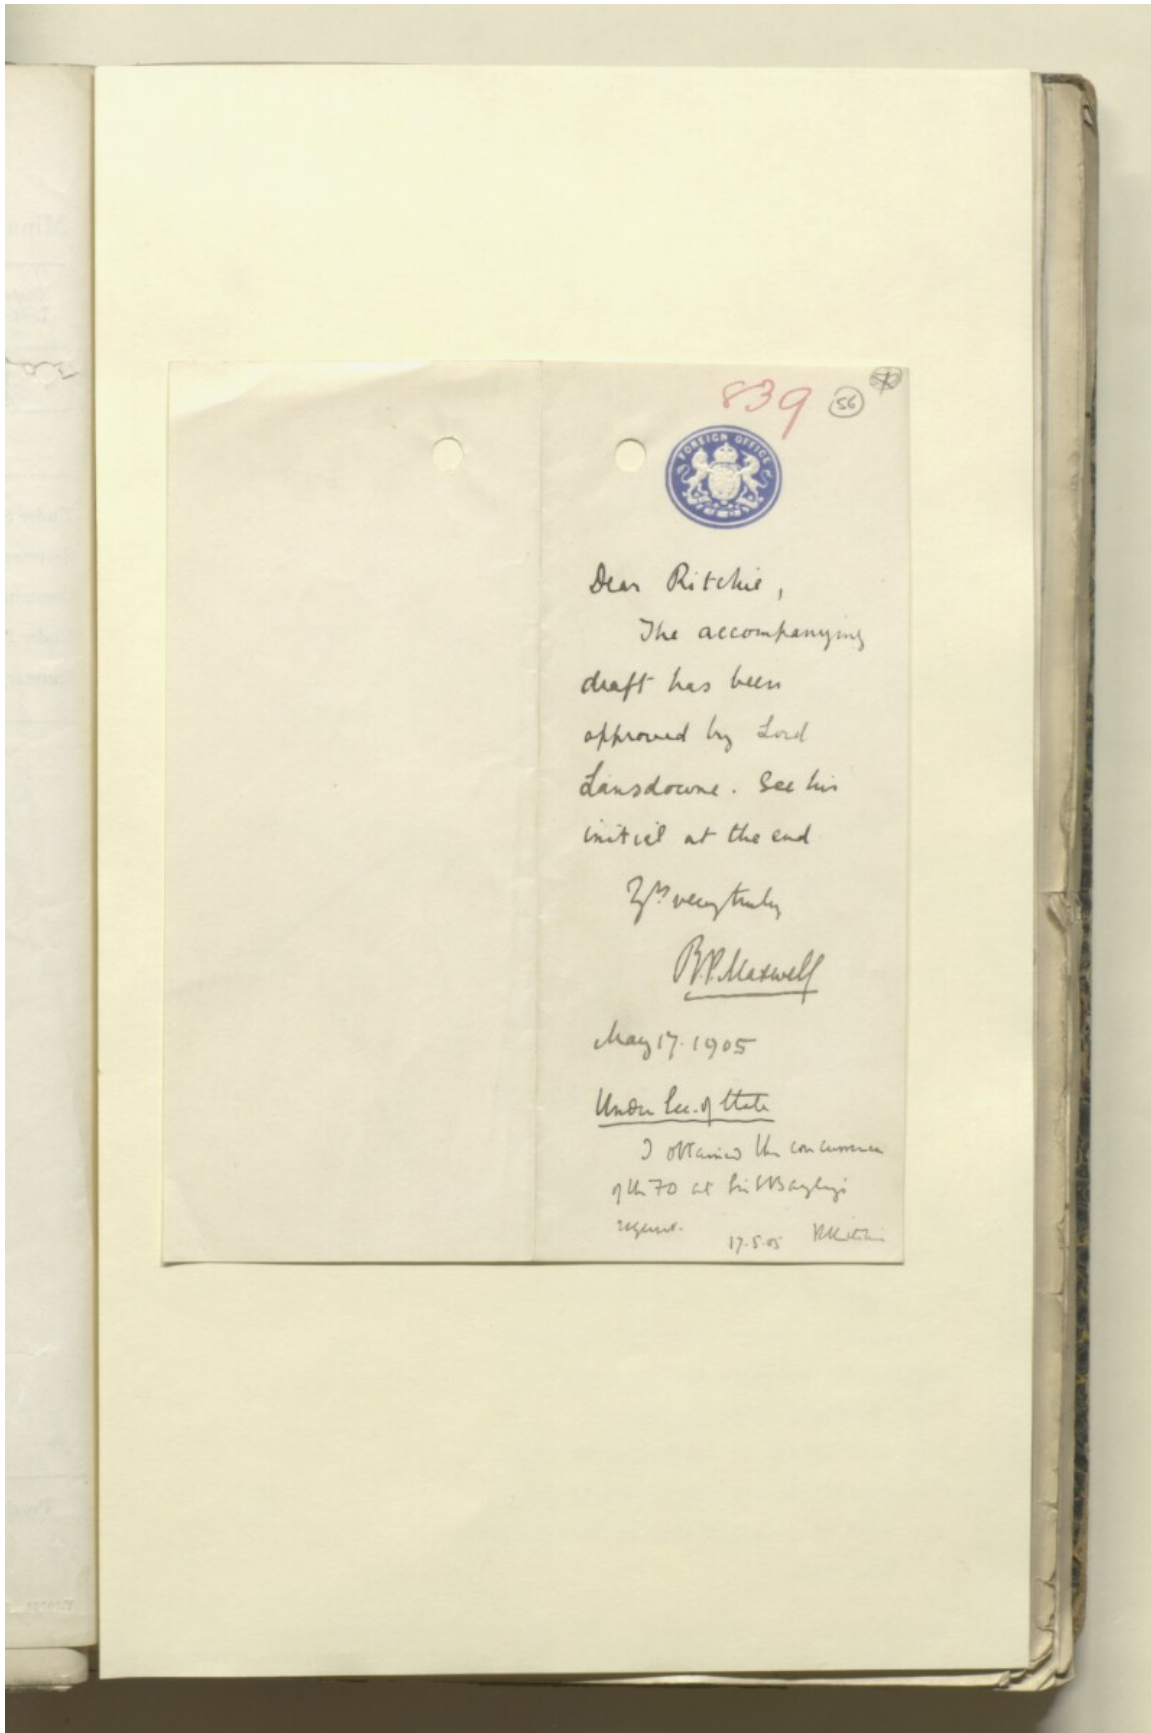 839
56
FOREIGN OFFICE
Dear Ritchie,
The accompanying
draft has been
approved by Lord
Lansdowne. See his
initial at the end
Yrs very truly
R.P. Maxwell
May 17. 1905
Under Sec. of State
I obtained the concurrence
of the FO at Sir
request.
17.5.05 RRitchie